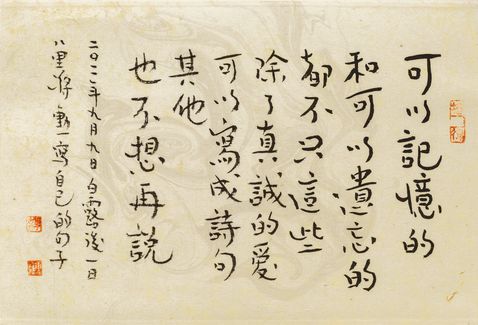 可以記憶的
和可以遺忘的
都不只這些
除了真誠的愛
可以寫成詩句
其他
也不想再說
九月九日白露後一日
八里蔣勳寫自己的句子